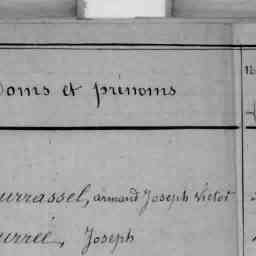 Noms et prénoms
urrassel, armand Joseph Victor
urrée, Joseph